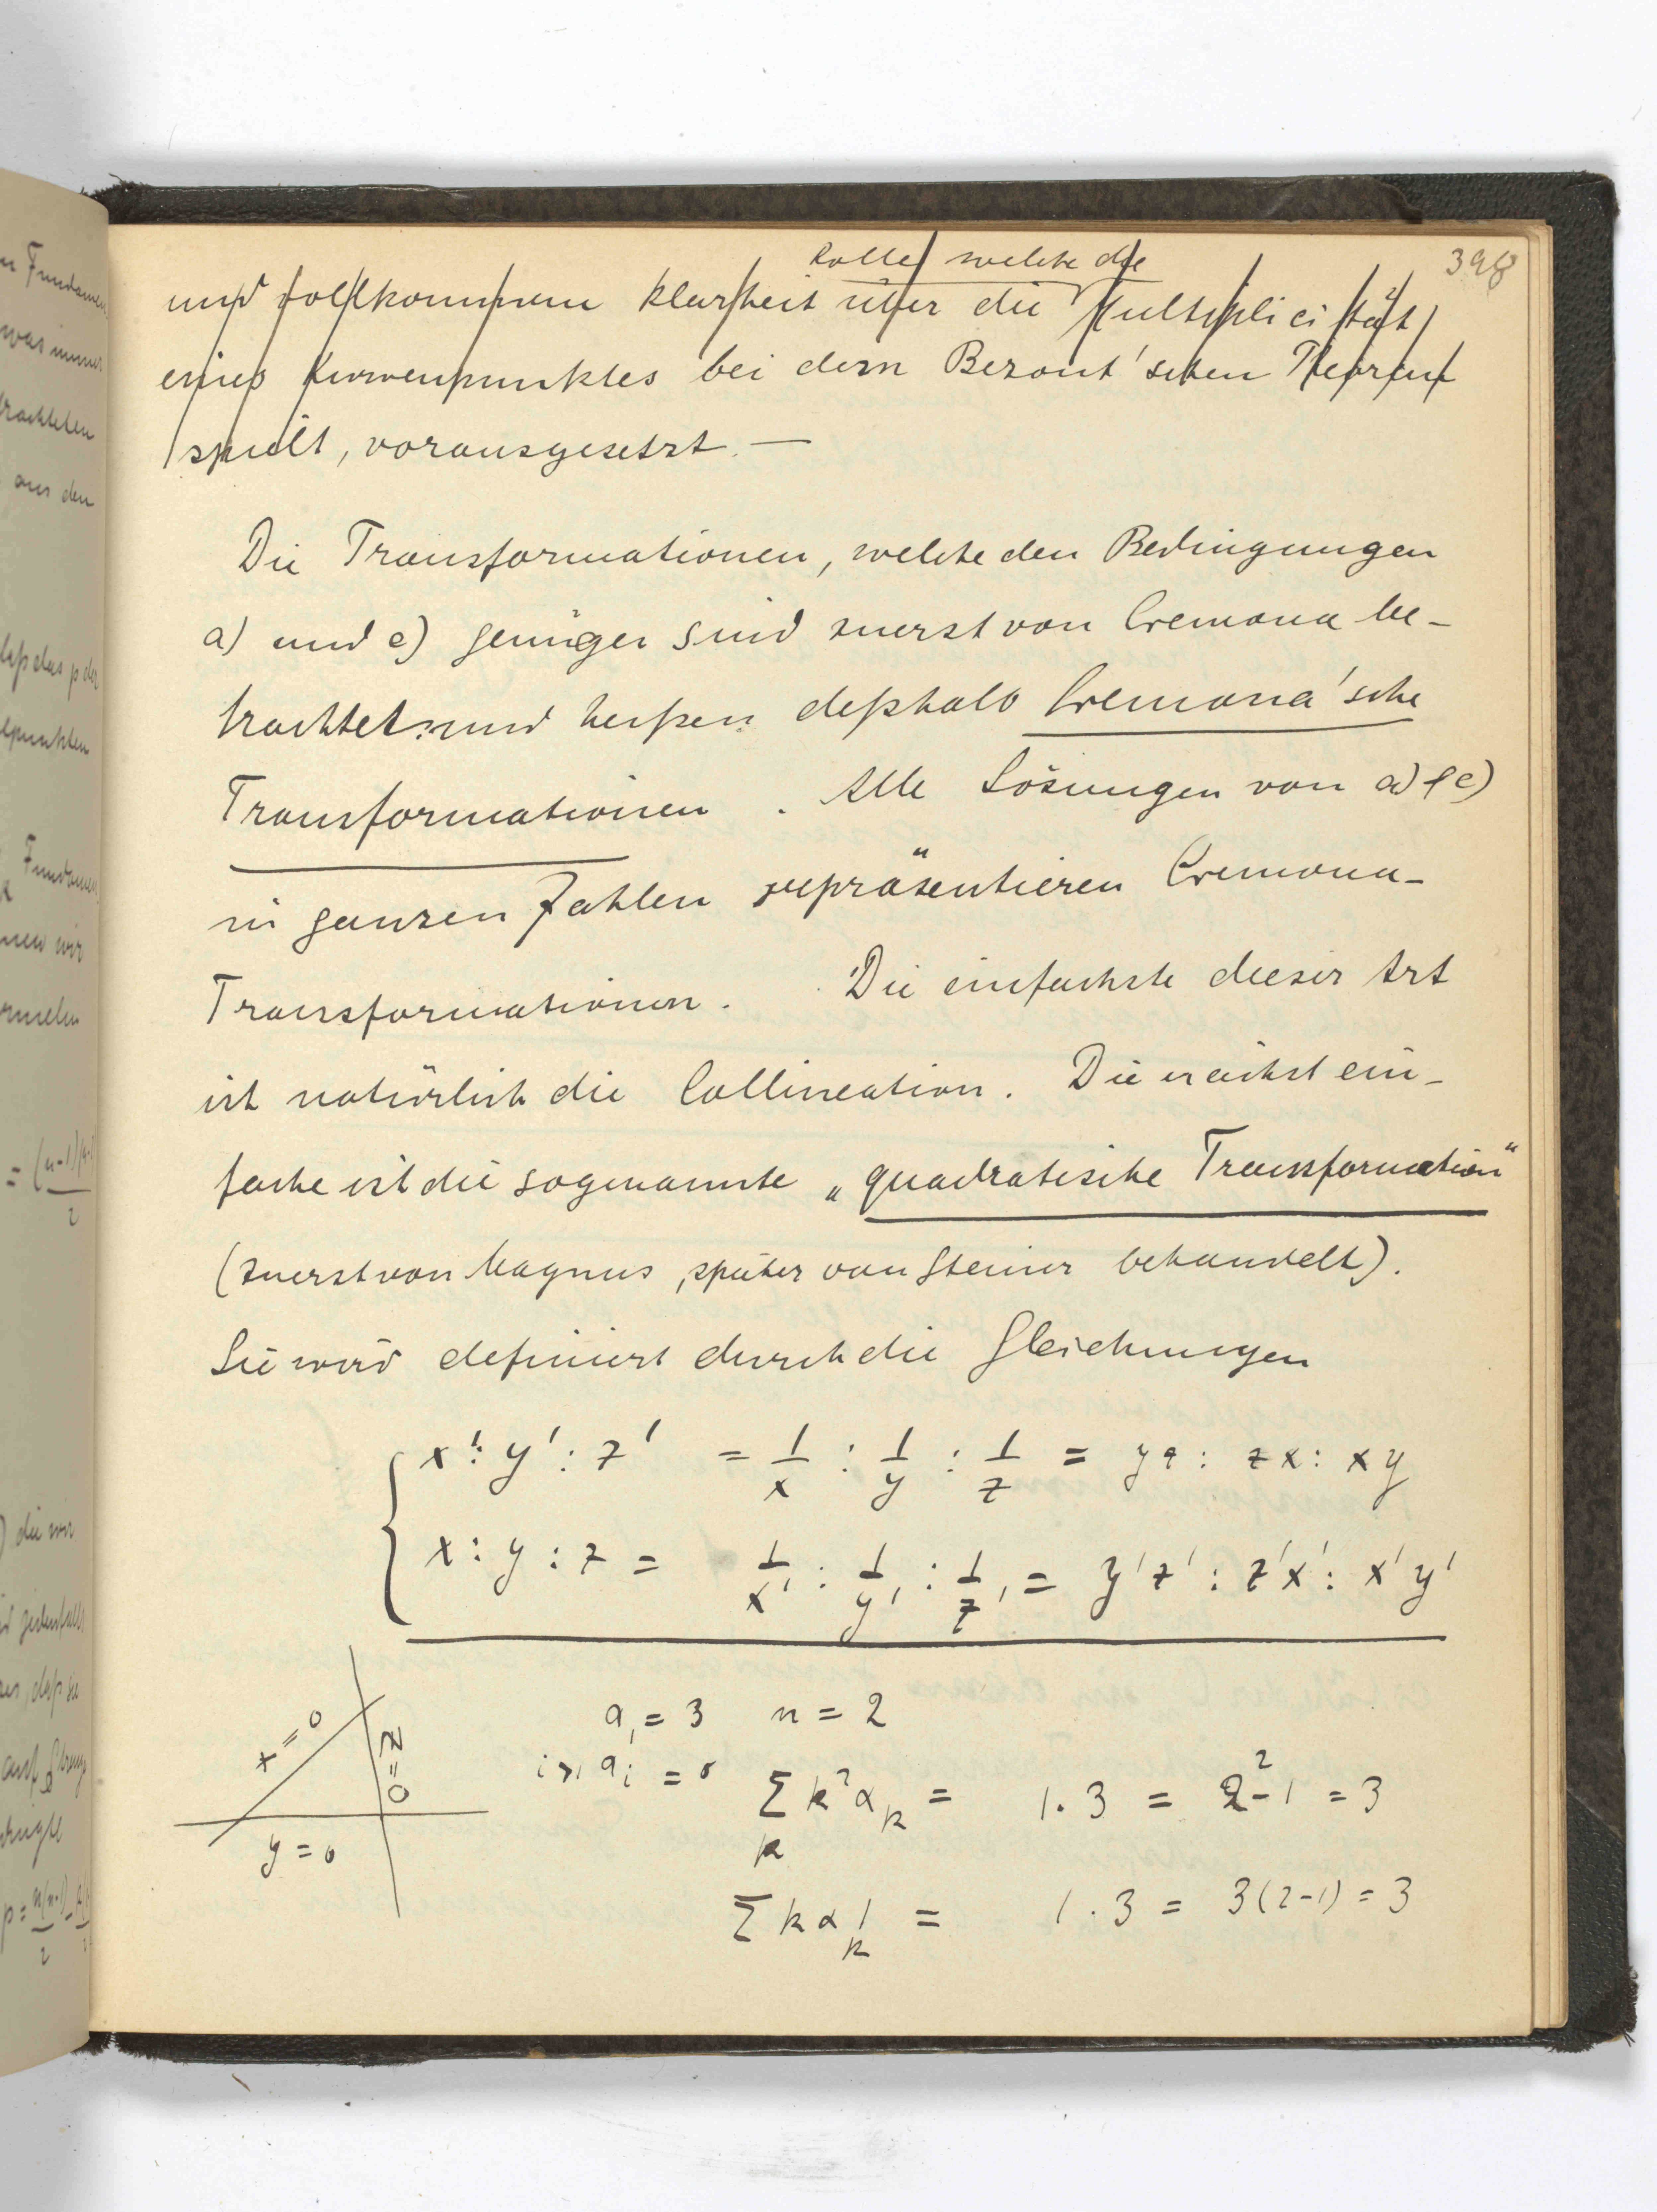 398
Rolle, welche die
und vollkommene Klarheit über die Multiplicität
eines Kurvenpunktes bei dem Bezout'schen Theorem
spielt, vorausgesetzt. —
Die Transformationen, welche den Bedingungen
a) und e) genügen sind zuerst von Cremona be-
trachtet und heißen deßhalb Cremona'sche
Transformationen. Alle Lösungen von a) & e)
in ganzen Zahlen repräsentieren Cremona-
Transformationen. Die einfachste dieser Art
ist natürlich die Collineation. Die nächst ein-
fache ist die sogenannte „quadratische Transformation"
(zuerst von Magnus, später von Steiner behandelt).
Sie wird definiert durch die Gleichungen
x' : y' : z' = 1/x : 1/y : 1/z = yz : zx : xy
x : y : z = 1/x' : 1/y' : 1/z' = y'z' : z'x' : x'y'
x = 0
z = 0
y = 0
α₁ = 3 n = 2
i>1 αi = 0
Σ k² αk = 1 . 3 = 2² - 1 = 3
k
Σ k αk = 1 . 3 = 3(2-1) = 3